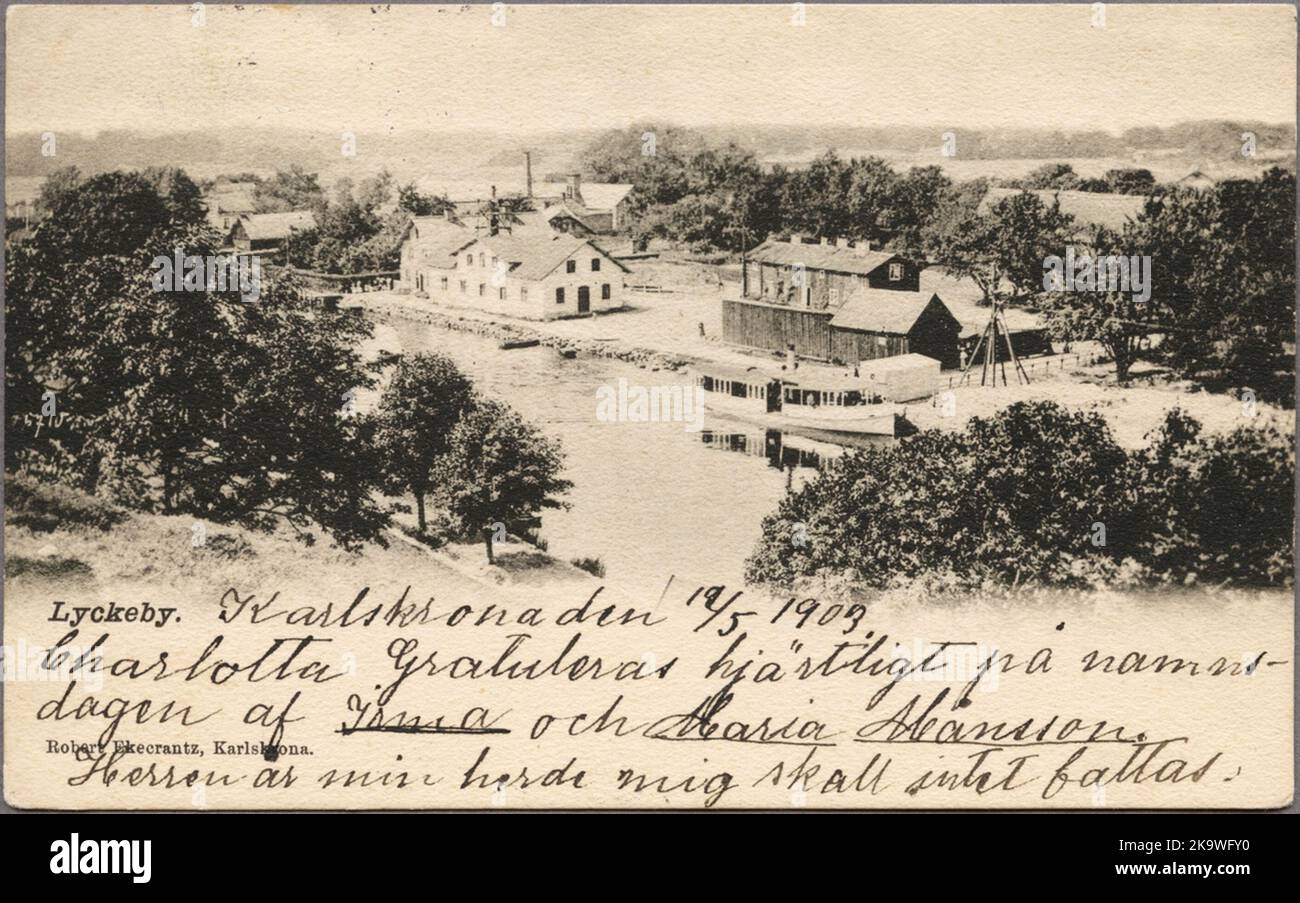 5710
Lyckeby. Karlskrona den 12/5 1903
Charlotta Gratuleras hjärtligt på namns-
dagen af Irma och Maria Månsson.
Robert Ekecrantz, Karlskrona.
Herren är min herde mig skall intet fattas.
alamy
Image ID: K9WFY0
www.alamy.com